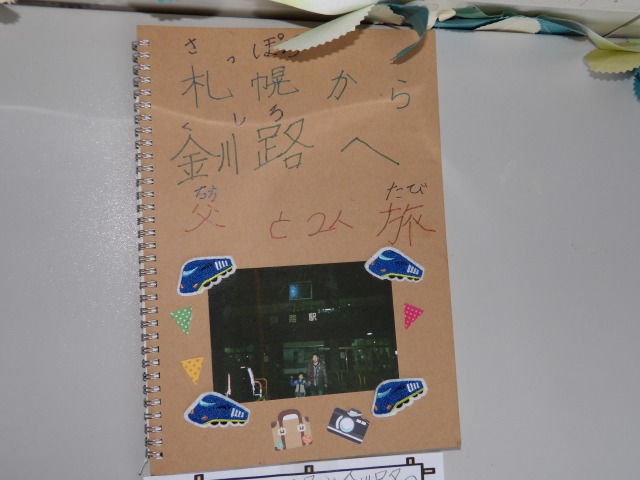 さっぽろ
札幌から
くしろ
釧路へ
ちち たび
父と2人旅
釧路駅